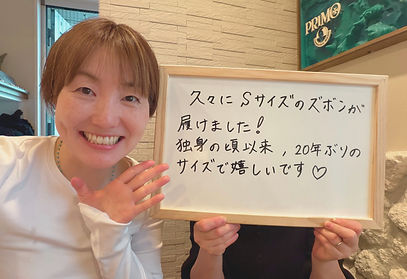 PRIMO
久々にSサイズのズボンが
履けました!
独身の頃以来,20年ぶりの
サイズで嬉しいです♡